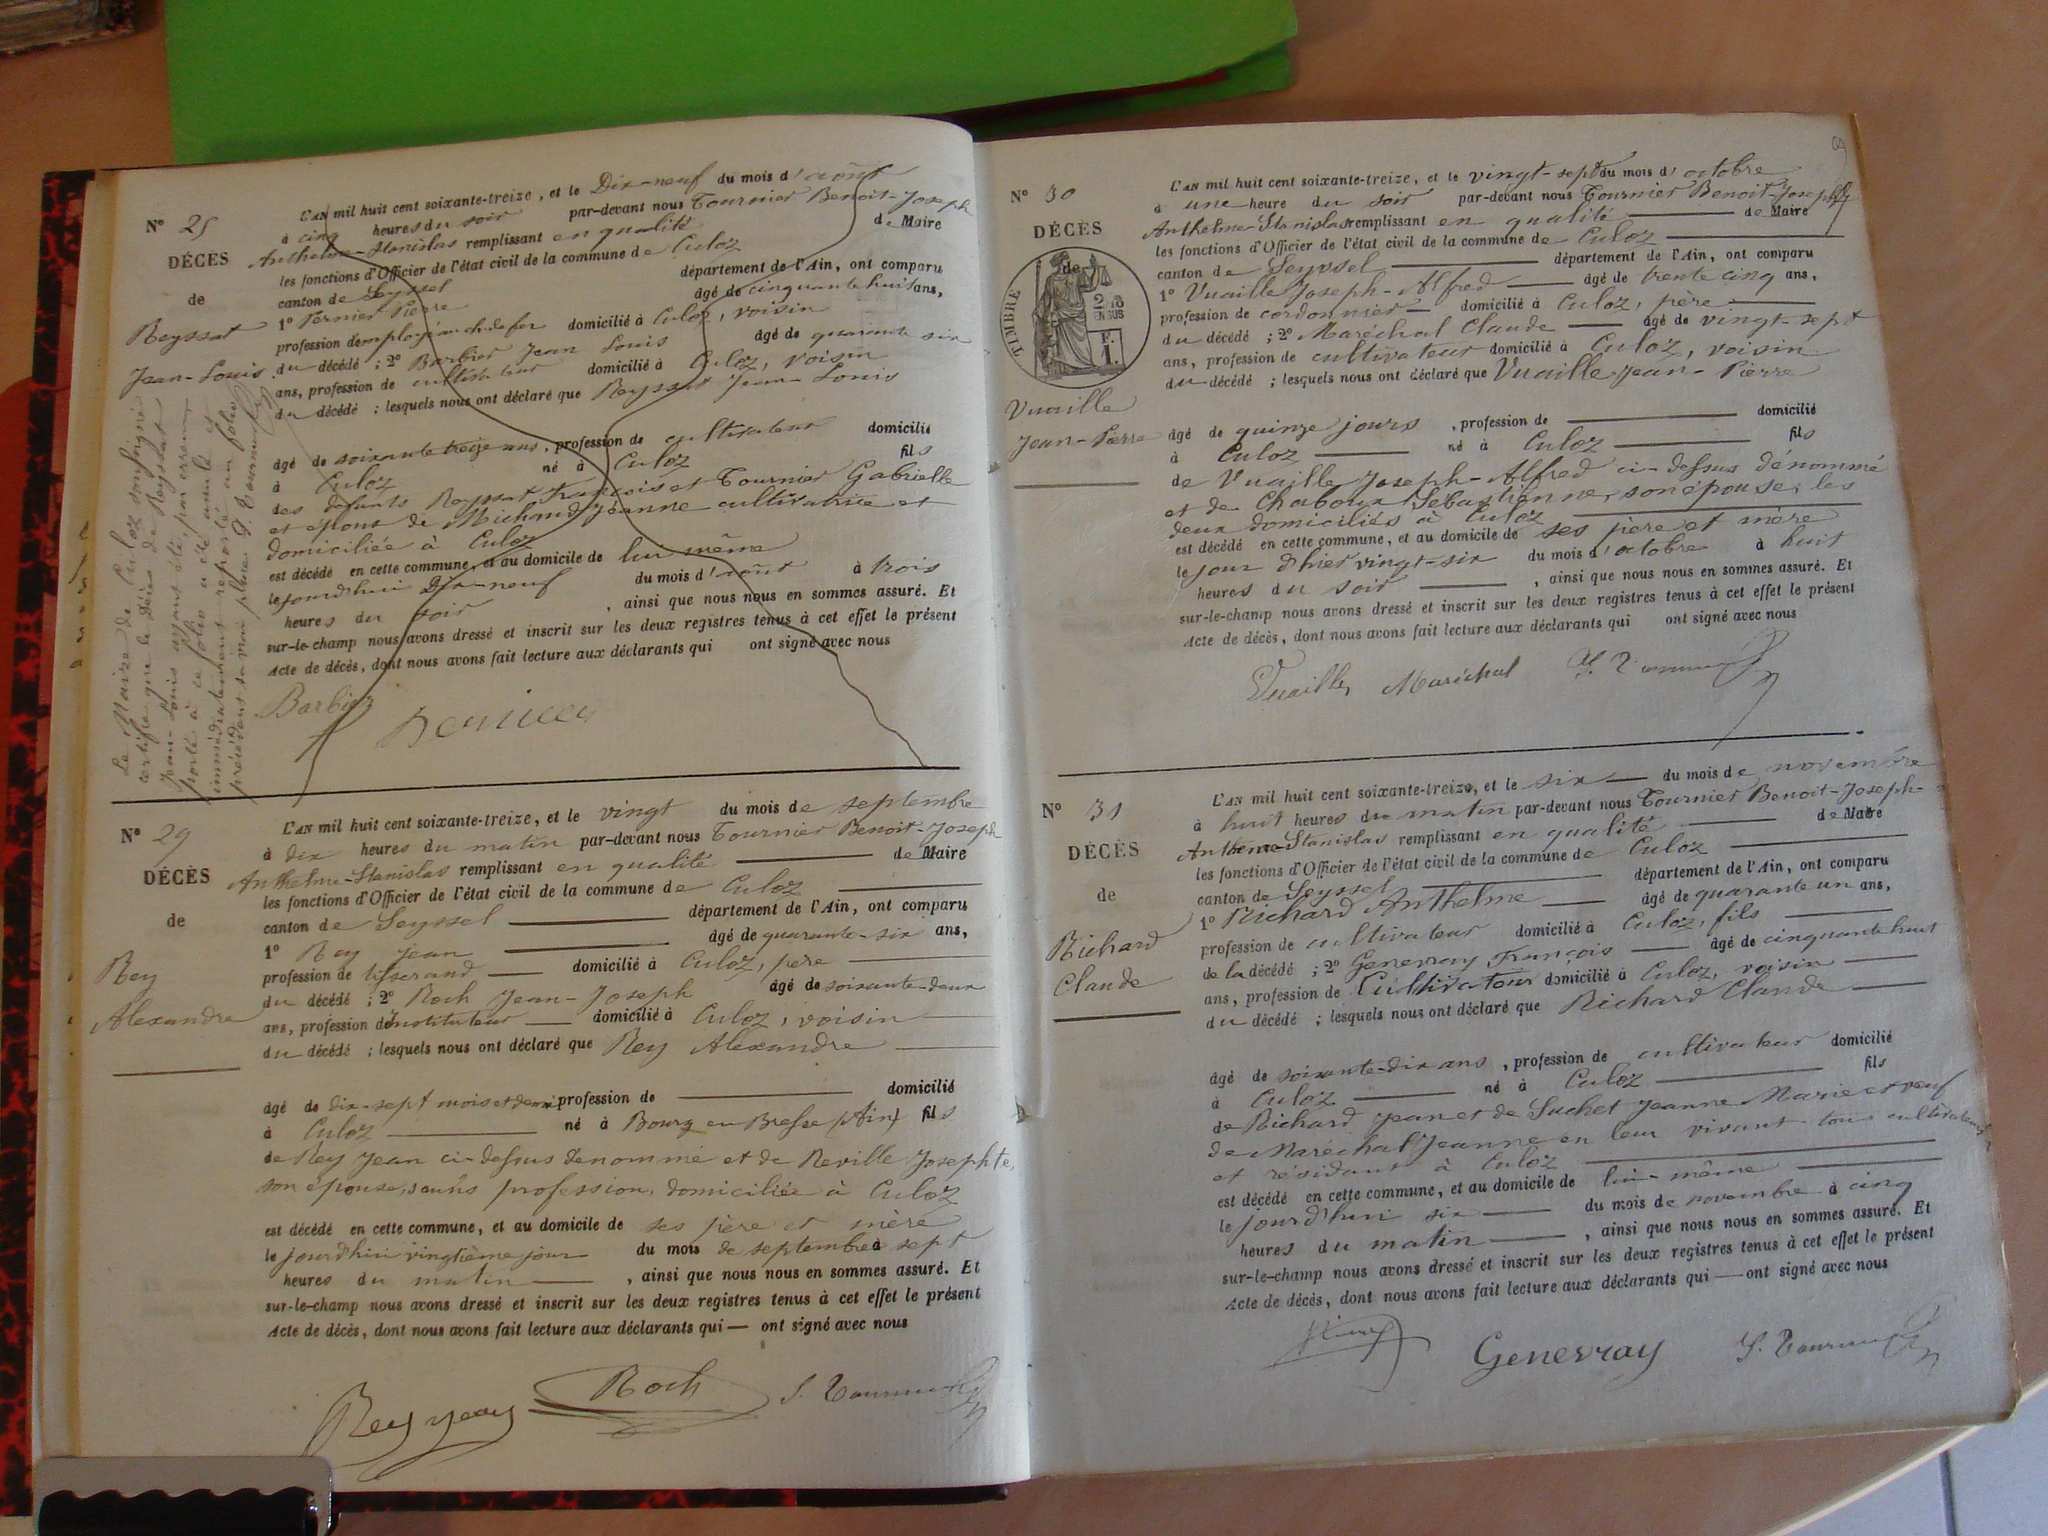 N° 25
DÉCÈS
de
Reyssat
Jean-Louis
L'AN mil huit cent soixante-treize, et le Dix-neuf du mois d'août
à cinq heures du soir par-devant nous Tournier Benoit-Joseph
Anthelme-Stanislas remplissant en qualité de Maire
les fonctions d'Officier de l'état civil de la commune de Culoz
canton de Seyssel département de l'Ain, ont comparu
1° Pernier Pierre âgé de cinquante huit ans,
profession d'employé au ch. de fer domicilié à Culoz, voisin
du décédé ; 2° Barbier Jean Louis âgé de quarante six
ans, profession de cultivateur domicilié à Culoz, voisin
du décédé ; lesquels nous ont déclaré que Reyssat Jean-Louis
âgé de soixante treize ans, profession de cultivateur domicilié
à Culoz né à Culoz fils
des défunts Reyssat François et Tournier Gabrielle
et époux de Michaud Jeanne cultivatrice et
domiciliée à Culoz
est décédé en cette commune, et au domicile de lui même
le jourd'hui Dix-neuf du mois d'août à trois
heures du soir , ainsi que nous nous en sommes assuré. Et
sur-le-champ nous avons dressé et inscrit sur les deux registres tenus à cet effet le présent
Acte de décès, dont nous avons fait lecture aux déclarants qui ont signé avec nous
Barbier
Le Maire de Culoz soussigné
certifie que le décès de Reyssat
Jean-Louis ayant été, par erreur
porté à ce folio a été annulé et
immédiatement reporté au folio
précédent sa vraie place. S. Tournier
N° 29
DÉCÈS
de
Rey
Alexandre
L'AN mil huit cent soixante-treize, et le vingt du mois de septembre
à dix heures du matin par-devant nous Tournier Benoit-Joseph
Anthelme-Stanislas remplissant en qualité de Maire
les fonctions d'Officier de l'état civil de la commune de Culoz
canton de Seyssel département de l'Ain, ont comparu
1° Rey Jean âgé de quarante-six ans,
profession de tisserand domicilié à Culoz, père
du décédé ; 2° Roch Jean-Joseph âgé de soixante-deux
ans, profession d'Instituteur domicilié à Culoz, voisin
du décédé ; lesquels nous ont déclaré que Rey Alexandre
âgé de dix-sept mois et demi profession de domicilié
à Culoz né à Bourg en Bresse (Ain) fils
de Rey Jean ci-dessus dénommé et de Reville Josephte,
son épouse, sans profession, domiciliée à Culoz
est décédé en cette commune, et au domicile de ses père et mère
le jourd'hui vingtième jour du mois de septembre à sept
heures du matin , ainsi que nous nous en sommes assuré. Et
sur-le-champ nous avons dressé et inscrit sur les deux registres tenus à cet effet le présent
Acte de décès, dont nous avons fait lecture aux déclarants qui — ont signé avec nous
Rey Jean Roch S. Tournier
N° 30
DÉCÈS
de
TIMBRE
2 10
EN SUS
F.
1.
Vuaille
Jean-Pierre
L'AN mil huit cent soixante-treize, et le vingt-sept du mois d'octobre
à une heure du soir par-devant nous Tournier Benoit-Joseph
Anthelme-Stanislas remplissant en qualité de Maire
les fonctions d'Officier de l'état civil de la commune de Culoz
canton de Seyssel département de l'Ain, ont comparu
1° Vuaille Joseph-Alfred âgé de trente cinq ans,
profession de cordonnier domicilié à Culoz, père
du décédé ; 2° Maréchal Claude âgé de vingt-sept
ans, profession de cultivateur domicilié à Culoz, voisin
du décédé ; lesquels nous ont déclaré que Vuaille Jean-Pierre
âgé de quinze jours , profession de domicilié
à Culoz né à Culoz fils
de Vuaille Joseph-Alfred ci-dessus dénommé
et de Chaboux Sébastienne, son épouse, les
deux domiciliés à Culoz
est décédé en cette commune, et au domicile de ses père et mère
le jour d'hier vingt-six du mois d'octobre à huit
heures du soir , ainsi que nous nous en sommes assuré. Et
sur-le-champ nous avons dressé et inscrit sur les deux registres tenus à cet effet le présent
Acte de décès, dont nous avons fait lecture aux déclarants qui ont signé avec nous
Vuaille, Maréchal S. Tournier
N° 31
DÉCÈS
de
Richard
Claude
L'AN mil huit cent soixante-treize, et le six du mois de novembre
à huit heures du matin par-devant nous Tournier Benoit-Joseph-
Anthelme-Stanislas remplissant en qualité de Maire
les fonctions d'Officier de l'état civil de la commune de Culoz
canton de Seyssel département de l'Ain, ont comparu
1° Richard Anthelme âgé de quarante un ans,
profession de cultivateur domicilié à Culoz, fils
de la décédé ; 2° Genevray François âgé de cinquante huit
ans, profession de Cultivateur domicilié à Culoz, voisin
du décédé ; lesquels nous ont déclaré que Richard Claude
âgé de soixante-dix ans , profession de cultivateur domicilié
à Culoz né à Culoz fils
de Richard Jean et de Suchet Jeanne Marie et veuf
de Maréchal Jeanne en leur vivant tous cultivateurs
et résidant à Culoz
est décédé en cette commune, et au domicile de lui-même
le jourd'hui six du mois de novembre à cinq
heures du matin , ainsi que nous nous en sommes assuré. Et
sur-le-champ nous avons dressé et inscrit sur les deux registres tenus à cet effet le présent
Acte de décès, dont nous avons fait lecture aux déclarants qui — ont signé avec nous
Genevray S. Tournier